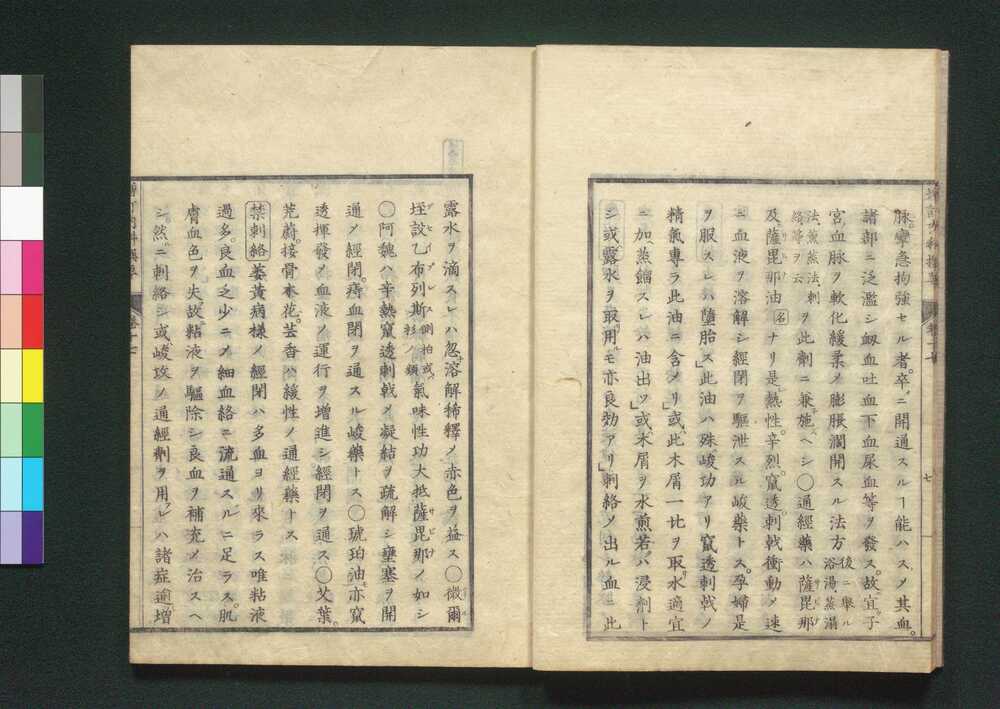 脉攣急拘強セル者。卒ニ開通スルヿ能ハスノ其血。
諸部ニ泛濫シ衂血吐血下血尿血等ヲ發ス。故宜。子
宮血脉ヲ軟化緩柔ノ膨脹濶開スル法方後ニ擧ル浴湯、蒸溻
法、薫蒸法、刺絡等ヲ云ヲ此劑ニ兼施ヘシ◯通經藥ハ薩毘那
及薩毘那油名ナリ是熱性。辛烈。竄透。刺戟衝動ノ速
ニ血液ヲ溶解シ經閉ヲ驅泄スル峻藥トス。孕婦是
ヲ服スレハ墮胎ス」此油ハ殊峻功アリ竄透刺戟ノ
精氣專ラ此油ニ含メリ」或此木屑一比ヲ取水適宜
ニ加蒸餾スレハ油出ツ」或木屑ヲ水煎若ハ浸劑ト
シ或露水ヲ取用モ亦良効アリ」刺絡ノ出ル血ニ此
露水ヲ滴スレハ忽溶解稀釋ノ赤色ヲ益ス◯微爾
垤設乙布列斯側柏或杉ノ類氣味性功大抵薩毘那ノ如シ
◯阿魏ハ辛熱竄透刺戟ノ凝結ヲ疏解シ壅塞ヲ開
通ノ經閉。痔血閉ヲ通スル峻藥トス◯琥珀油亦竄
透揮發ノ血液ノ運行ヲ增進シ經閉ヲ通ス◯艾葉。
茺蔚。接骨木花。芸香ハ緩性ノ通經藥トス
禁刺絡萎黃病樣ノ經閉ハ多血ヨリ來ラス唯粘液
過多。良血乏少ニノ細血絡ニ流通スルニ足ラス。肌
膚血色ヲ失故粘液ヲ驅除シ良血ヲ補充ノ治スヘ
シ然ニ刺絡シ或峻攻ノ通經劑ヲ用レハ諸症逾增
七